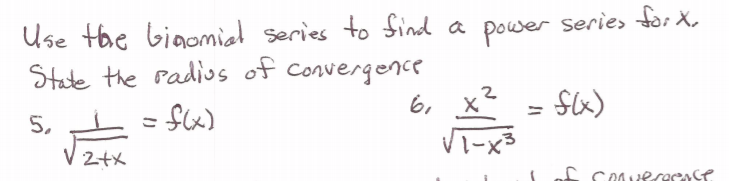 Use the binomial series to find a power series for x.
State the radius of convergence
5. 1/√(2+x) = f(x)
6. x²/√(1-x³) = f(x)
of convergence